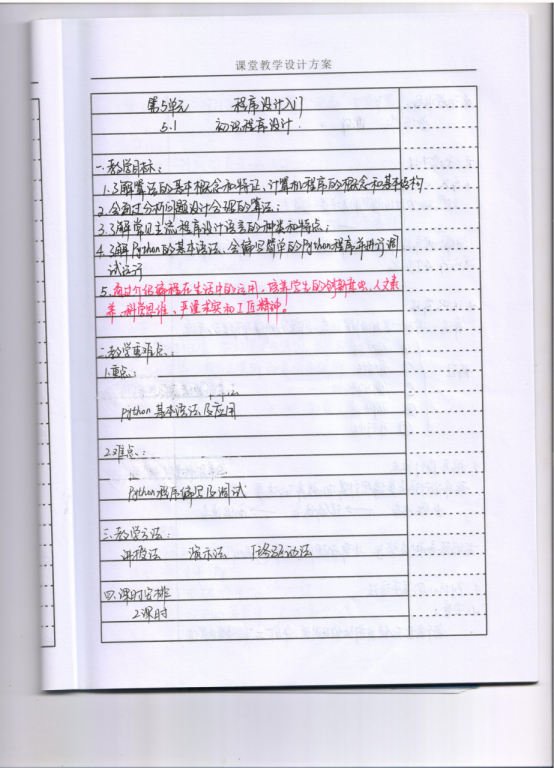 课堂教学设计方案
第5单元 程序设计入门
5.1 初识程序设计
一.教学目标:
1.了解算法的基本概念和特征,计算机程序的概念和基本结构
2.会通过分析问题设计合理的算法;
3.了解常见主流程序设计语言的种类和特点;
4.了解Python的基本语法、会编写简单的Python程序并进行调
试运行
5.通过介绍编程在生活中的应用,培养学生的创新意识、人文素
养、科学思维、严谨求实和工匠精神。
二.教学重难点:
1.重点:
Python基本语法及应用
2.难点:
Python程序编写及调试
三.教学方法:
讲授法 演示法 任务驱动法
四.课时安排
2课时